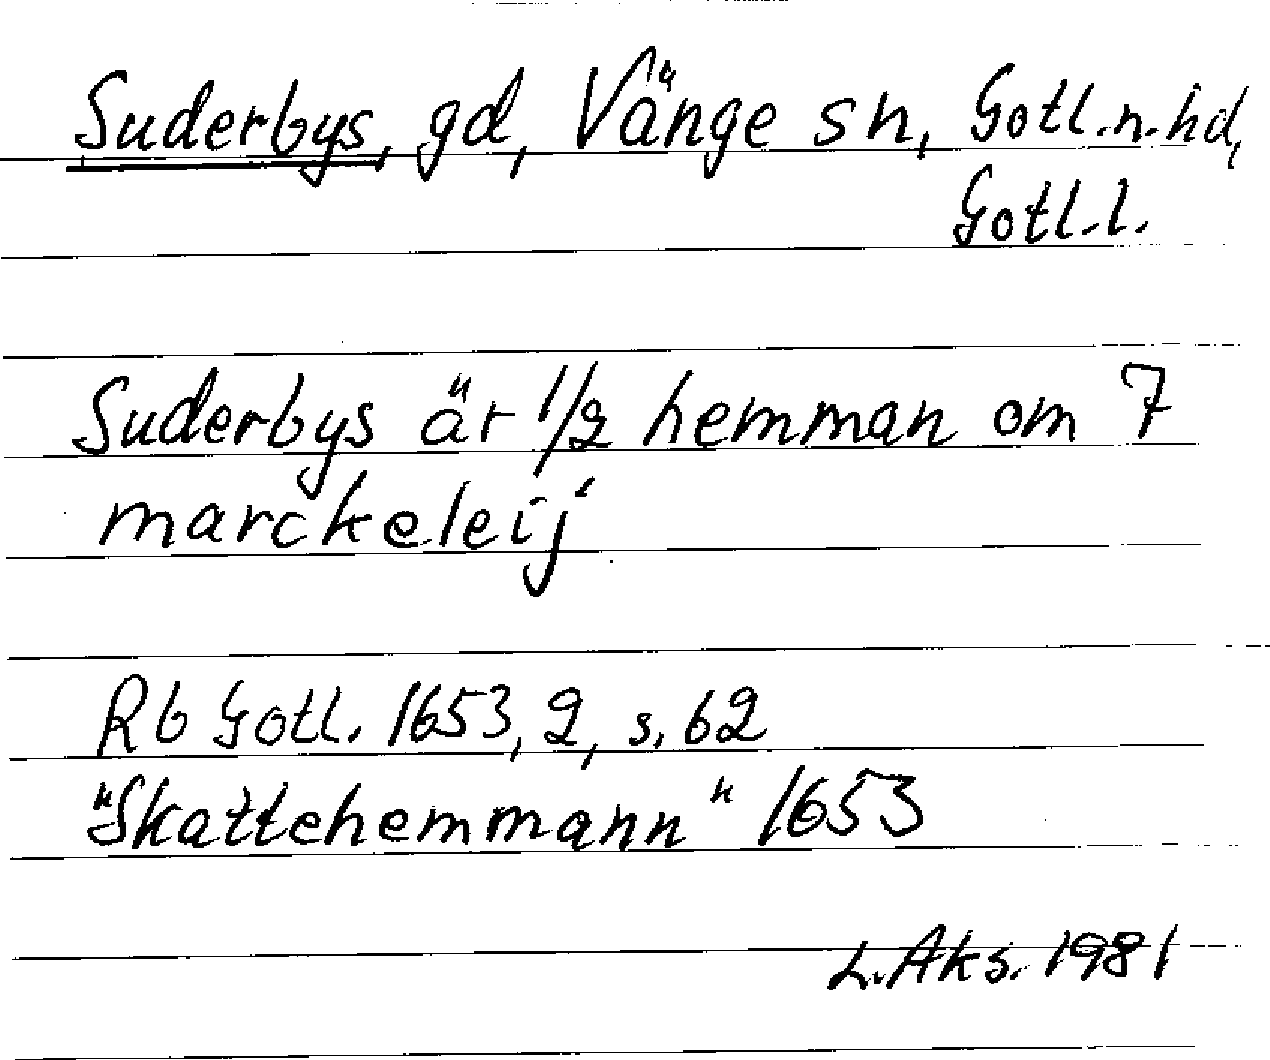 Suderbys, gd, Vänge sn, Gotl.n.hd,
Gotl.l.
Suderbys är 1/2 hemman om 7
marckeleij
Rb Gotl. 1653, 2, s. 62
"Skattehemmann" 1653
L. Aks. 1981